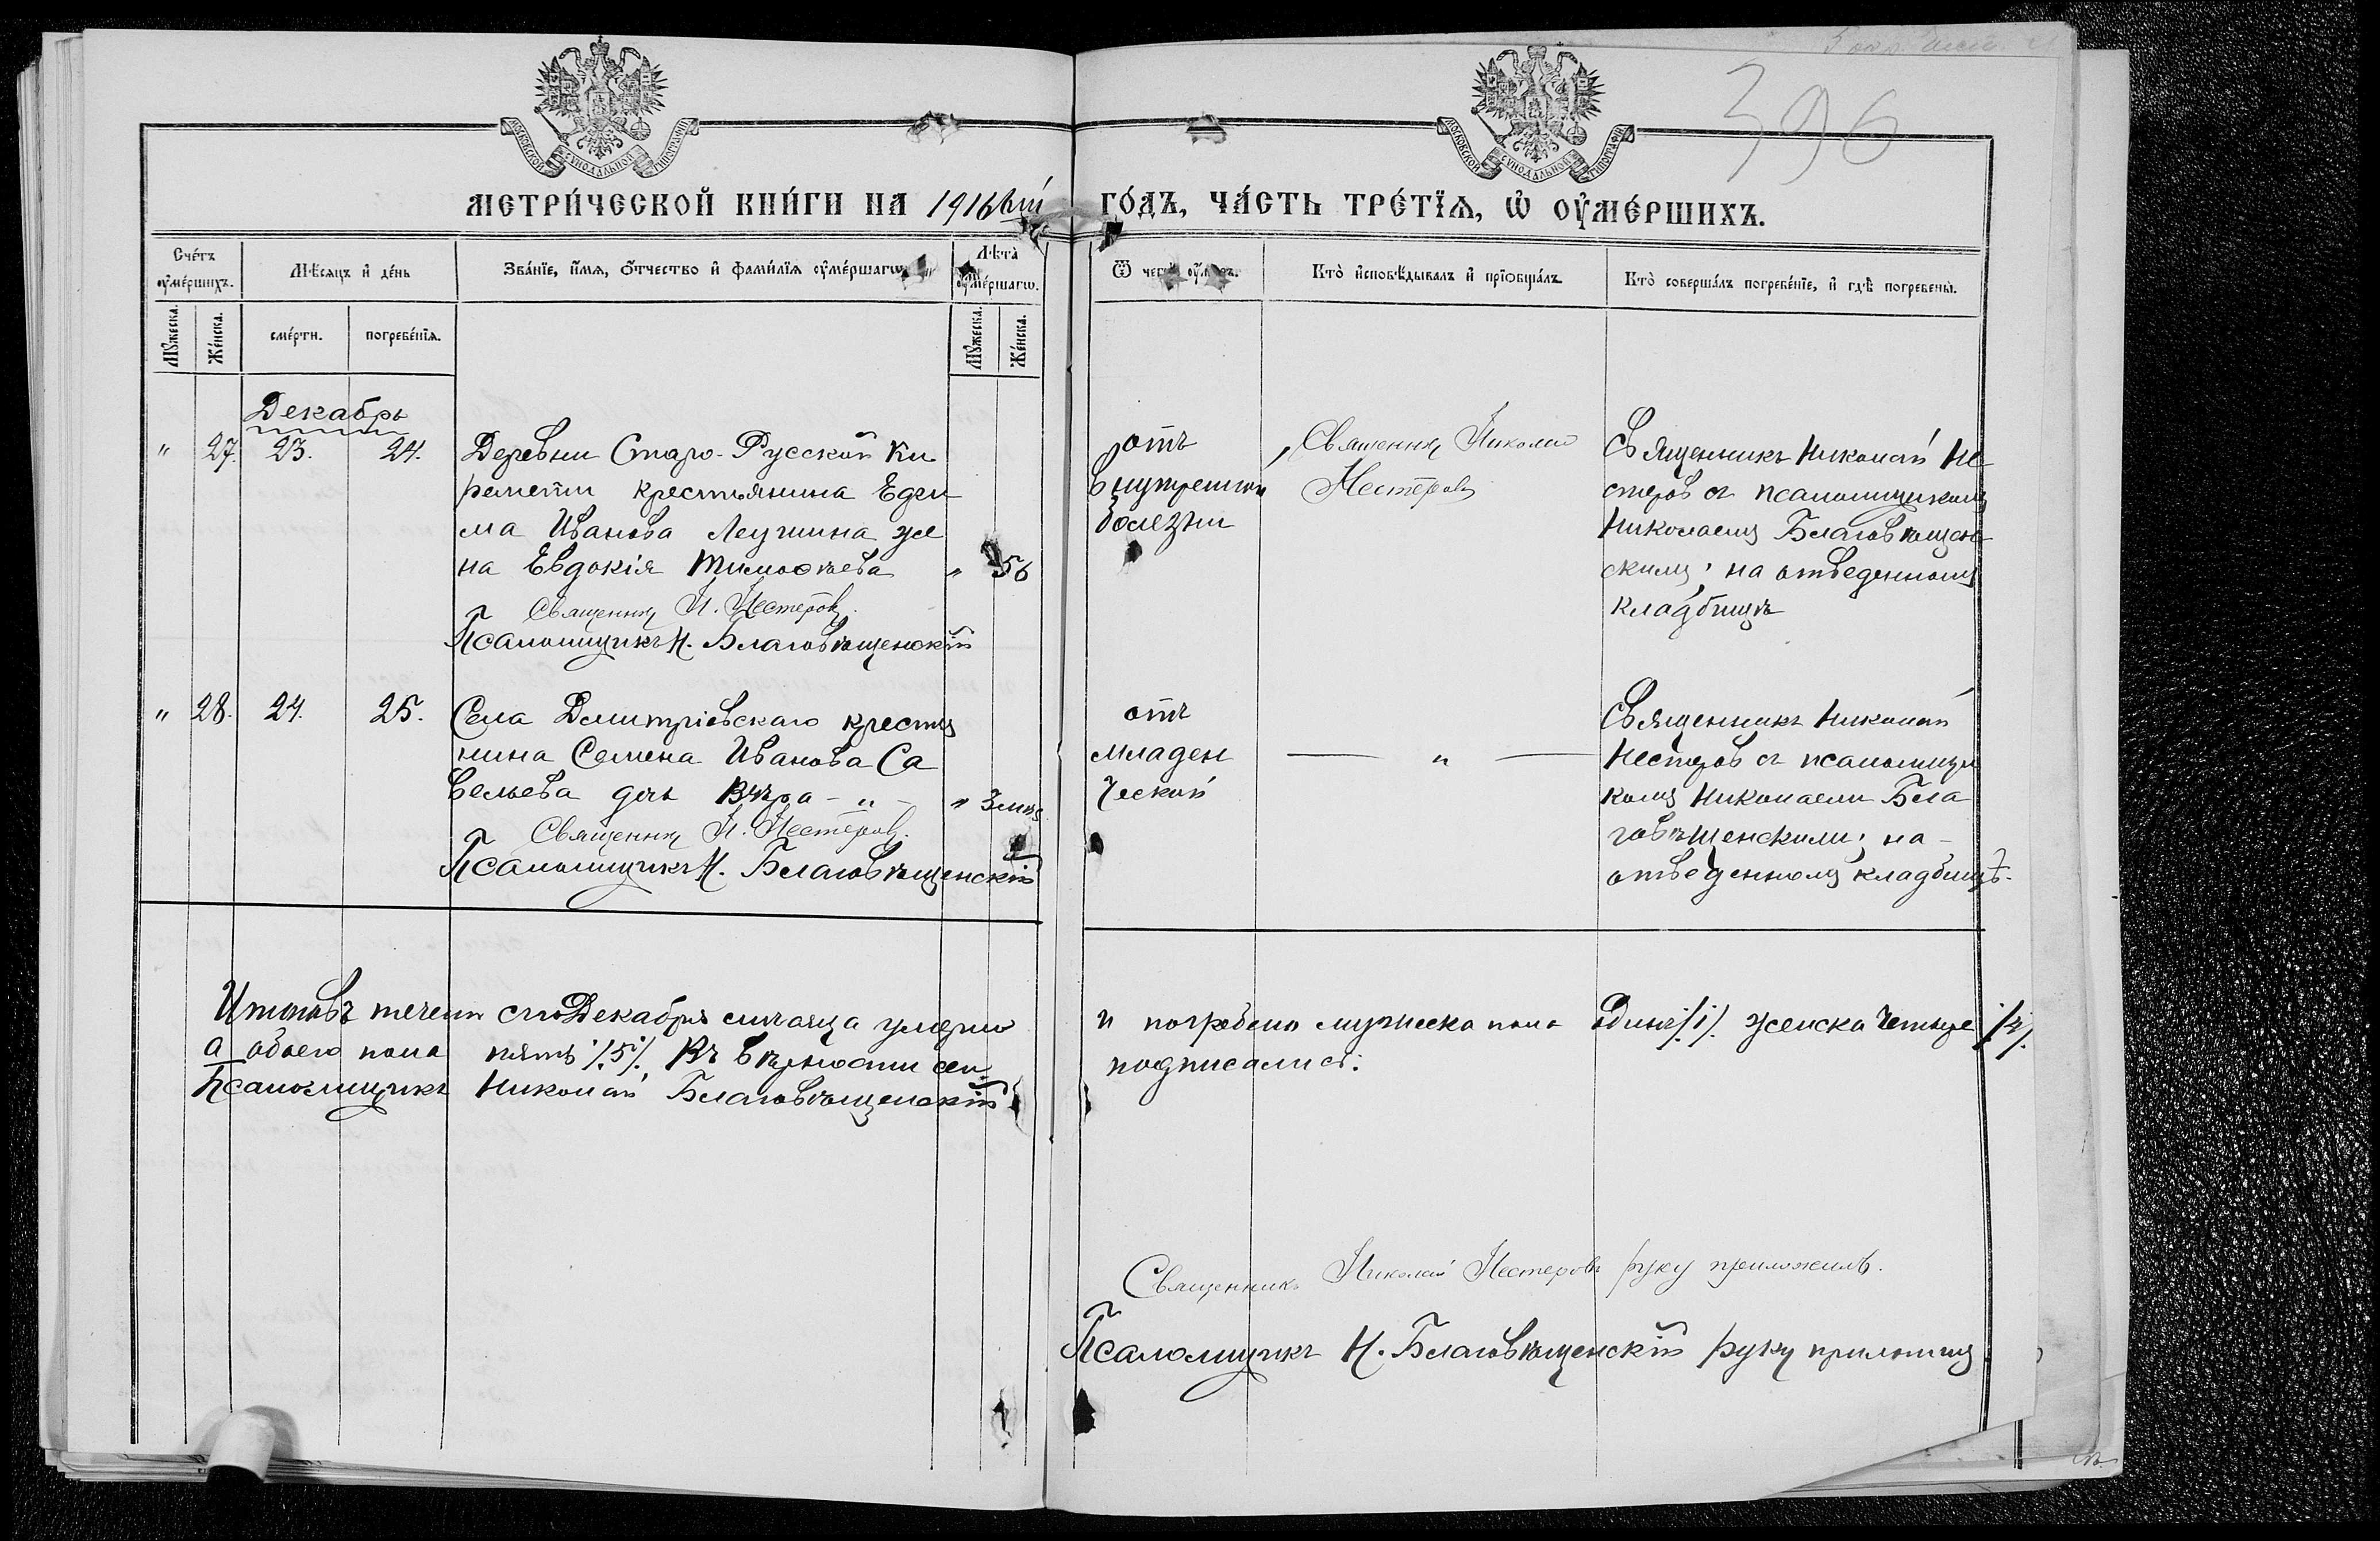 396
МОСКОВСКОЙ СУНОДАЛЬНОЙ ТИПОГРАФІИ
МОСКОВСКОЙ СУНОДАЛЬНОЙ ТИПОГРАФІИ
МЕТРИ́ЧЕСКОЙ КНИ́ГИ НА 1916 вый ГО́ДЪ, ЧА́СТЬ ТРЕ́ТЇѦ, Ѡ҆ ОУ҆МЕ́РШИХЪ.
Сче́тъ оу҆ме́ршихъ.
Мѣ́сѧцъ и҆ де́нь
Зва́нїе, и҆́мѧ, ѻ҆́тчество и҆ фами́лїѧ оу҆ме́ршагѡ
Лѣта̀ оу҆ме́ршагѡ.
Ѿ чегѡ̀ оу҆́меръ.
Кто̀ и҆сповѣ́дывалъ и҆ прїѡбща́лъ
Кто̀ соверша́лъ погребе́нїе, и҆ гдѣ̀ погребены̀.
Мꙋ́жеска.
Же́нска.
сме́рти.
погребе́нїѧ.
Мꙋ́жеска.
Же́нска.
Декабрь
" 27. 23. 24.
Деревни Старо-Русской Ки
ремети крестьянина Ефи
ма Иванова Леушина же
на Евдокія Тимоѳѣева " 56
Священникъ Н. Нестеровъ.
Псаломщикъ Н. Благовѣщенскій
отъ
внутренной
болезни
Священникъ Николай
Нестеровъ
Священникъ Николай Не
стеровъ съ псаломщикомъ
Николаемъ Благовѣщен
скимъ; на отведенномъ
кладбищѣ
" 28. 24. 25.
Села Димитріевскаго крестья
нина Семена Иванова Са
вельева дочь Вѣра - " - " 3 мѣс
Священникъ Н. Нестеровъ.
Псаломщикъ Н. Благовѣщенскій
отъ
младен
ческой
"
Священникъ Николай
Нестеровъ съ псаломщи
комъ Николаемъ Бла
говѣщенскимъ; на
отведенномъ кладбищѣ.
Итого въ теченіи сего Декабря мѣсяца умерло и погребено мужеска пола одинъ /1/. женска четыре /4/.
а обоего пола пять /5/. Въ вѣрности сей подписались:
Псаломщикъ Николай Благовѣщенскій
Священникъ Николай Нестеровъ руку приложилъ.
Псаломщикъ Н. Благовѣщенскій руку приложилъ